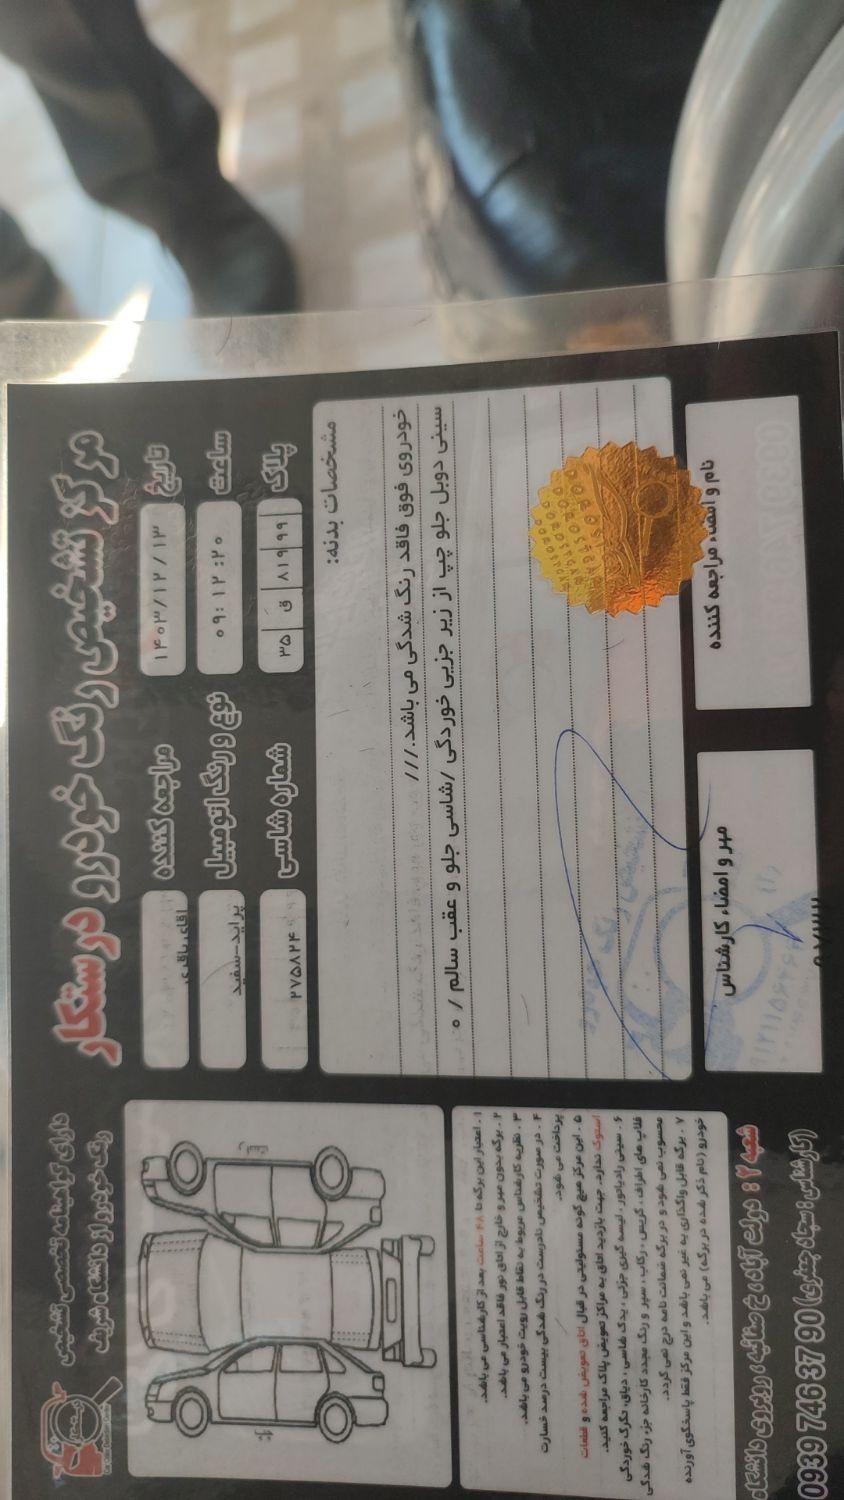 مرکز تشخیص رنگ خودرو درستکار
دارای گواهینامه تخصصی تشخیص
رنگ خودرو از دانشگاه شریف
تاریخ ۱۴۰۳/۱۲/۱۳
مراجعه کننده اقای باقری
ساعت ۰۹:۱۲:۲۰
نوع و رنگ اتومبیل پراید-سفید
پلاک ۹۹ ۸۱۹ ق ۳۵
شماره شاسی ۲۷۵۸۲۴
مشخصات بدنه:
خودروی فوق فاقد رنگ شدگی می باشد.///
سینی دوبل جلو چپ از زیر جزیی خوردگی /شاسی جلو و عقب سالم / ۰
نام و امضاء مراجعه کننده
مهر و امضاء کارشناس
تشخیص رنگ خودرو
۱. اعتبار این برگه تا ۴۸ ساعت بعد از کارشناسی می باشد.
۲. برگه بدون مهر و خارج از اتاق نور فاقد اعتبار می باشد.
۳. نظریه کارشناس مربوط به نقاط قابل رویت خودرو می باشد.
۴. در صورت تشخیص نادرست در رنگ شدگی بیست درصد خسارت
پرداخت می شود.
۵. این مرکز هیچ گونه مسئولیتی در قبال اتاق تعویض شده و قطعات
استوک ندارد. جهت بازدید اتاق به مراکز تعویض پلاک مراجعه کنید.
۶. سینی رادیاتور، لیسه گیری جزئی، یدک شاسی، دیاق، تگرگ خوردگی
قلاب های اطراف، گریس، رکاب، سپر و رنگ مجدد کارخانه جزء رنگ شدگی
محسوب نمی شود و در برگه ضمانت نامه درج نمی گردد.
۷. برگه قابل واگذاری به غیر نمی باشد و این مرکز فقط پاسخگوی آورنده
خودرو (نام ذکر شده در برگه) می باشد.
شعبه ۲: دولت آباد، خ صفائیه، روبروی دانشگاه
(کارشناس: سبحان جعفری) 0939 746 37 90